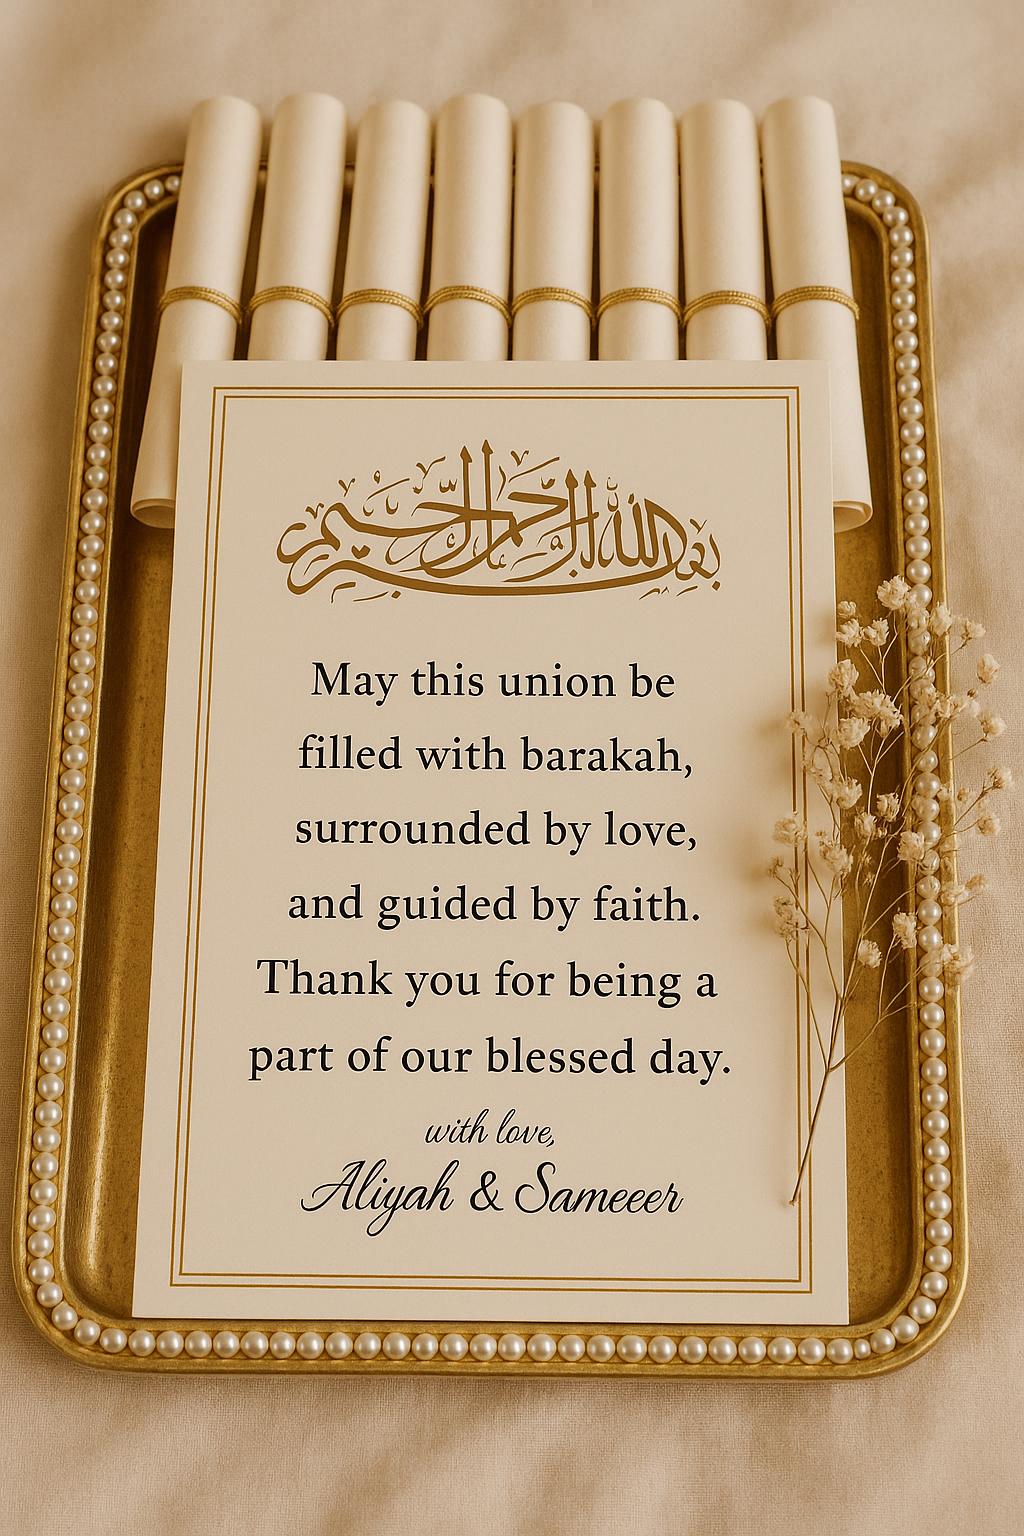 بسم الله الرحمن الرحيم
May this union be
filled with barakah,
surrounded by love,
and guided by faith.
Thank you for being a
part of our blessed day.
with love,
Aliyah & Sameeer